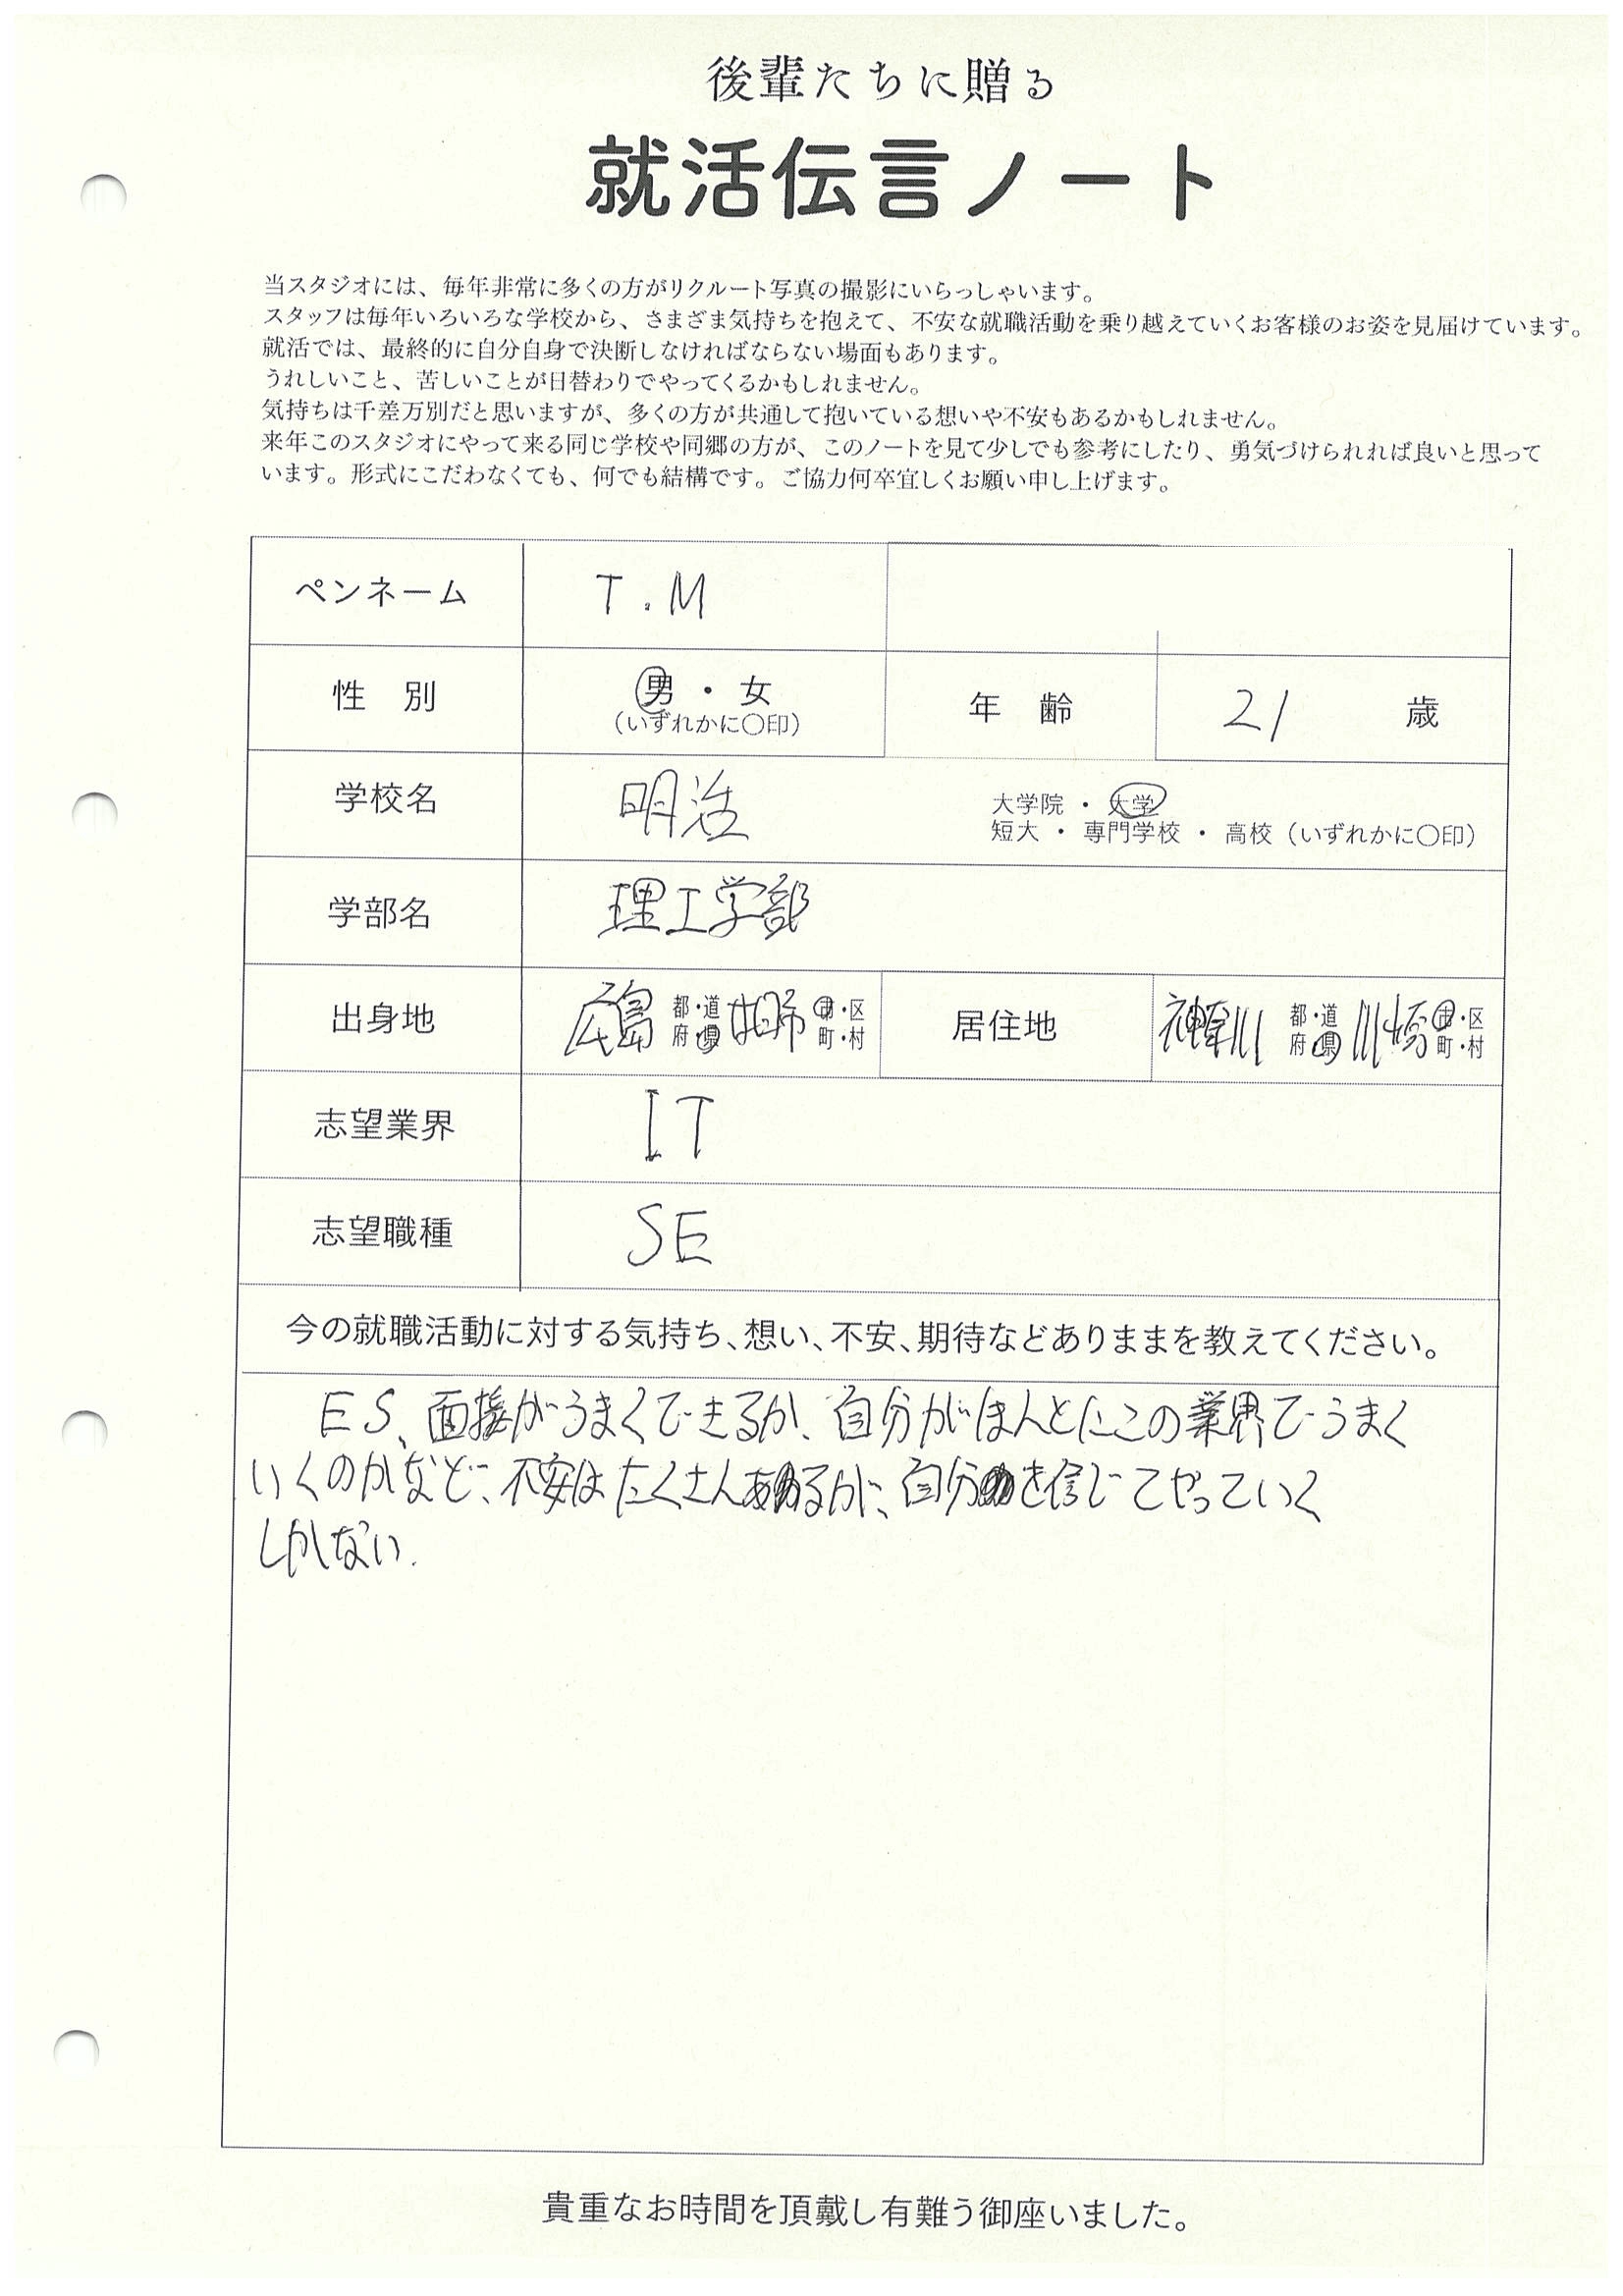 後輩たちに贈る
就活伝言ノート
当スタジオには、毎年非常に多くの方がリクルート写真の撮影にいらっしゃいます。
スタッフは毎年いろいろな学校から、さまざま気持ちを抱えて、不安な就職活動を乗り越えていくお客様のお姿を見届けています。
就活では、最終的に自分自身で決断しなければならない場面もあります。
うれしいこと、苦しいことが日替わりでやってくるかもしれません。
気持ちは千差万別だと思いますが、多くの方が共通して抱いている想いや不安もあるかもしれません。
来年このスタジオにやって来る同じ学校や同郷の方が、このノートを見て少しでも参考にしたり、勇気づけられれば良いと思って
います。形式にこだわなくても、何でも結構です。ご協力何卒宜しくお願い申し上げます。
ペンネーム T.M
性 別 男・女 年 齢 21 歳
(いずれかに〇印)
学校名 明治 大学院 ・ 大学
短大 ・ 専門学校 ・ 高校 (いずれかに〇印)
学部名 理工学部
出身地 広島 都・道 市・区 居住地 神奈川 都・道 川崎 市・区
府・県 町・村 府・県 町・村
志望業界 IT
志望職種 SE
今の就職活動に対する気持ち、想い、不安、期待などありままを教えてください。
ES、面接がうまくできるか、自分がほんとにこの業界でうまく
いくのかなど、不安はたくさんあるが、自分を信じてやっていく
しかない.
貴重なお時間を頂戴し有難う御座いました。